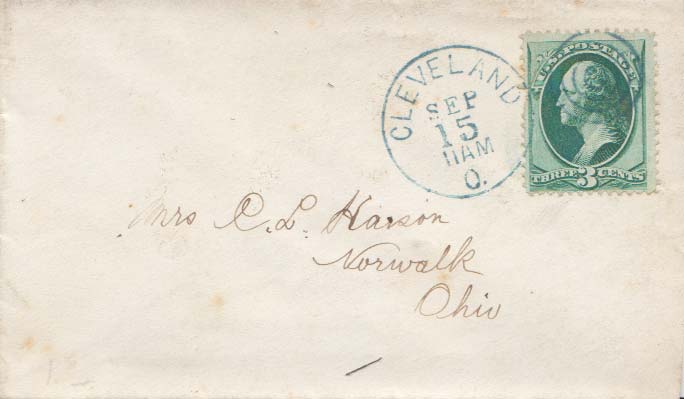 CLEVELAND
SEP
15
11AM
O.
U.S. POSTAGE
THREE 3 CENTS
Mrs C. L. Harson
Norwalk
Ohio